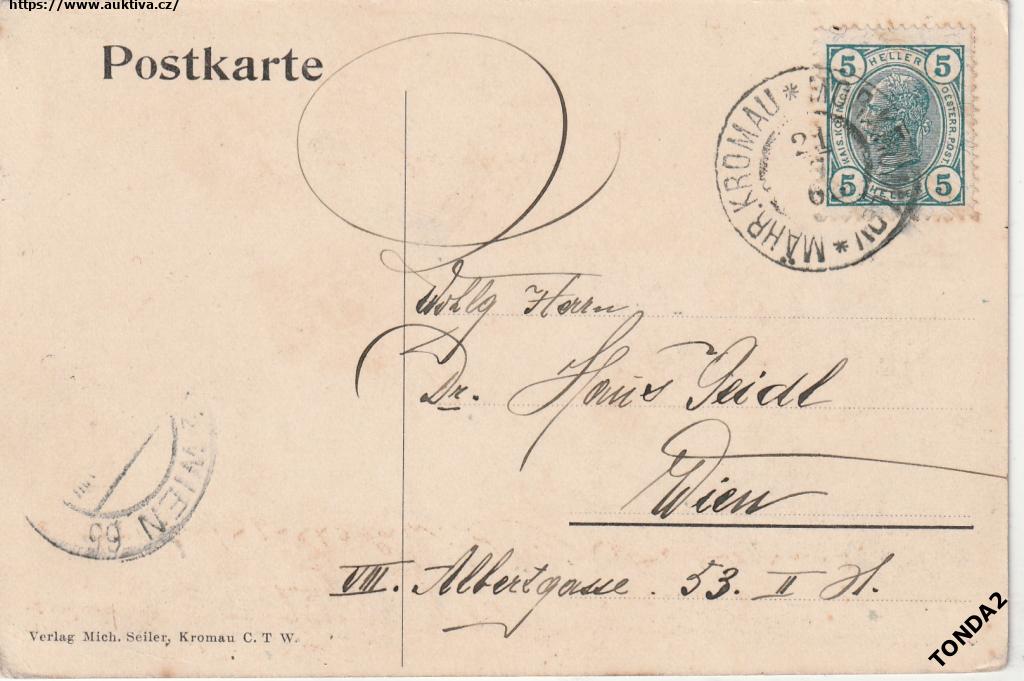 https://www.auktiva.cz/
Postkarte
5 HELLER 5
OESTERR. POST.
5 HELLER 5
* MÄHR. KROMAU *
21
6
Wohlg Herrn
Dr. Hans Seidl
Wien
VIII. Albertgasse . 53. II
WIEN
65
Verlag Mich. Seiler, Kromau C. T W.
TONDA2